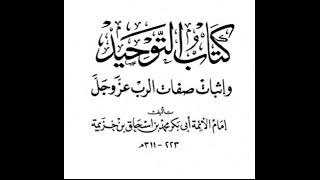 كتاب التوحيد
وإثبات صفات الرب عز وجل
تأليف
إمام الأئمة أبي بكر محمد بن إسحاق بن خزيمة
٢٢٣ - ٣١١ هـ